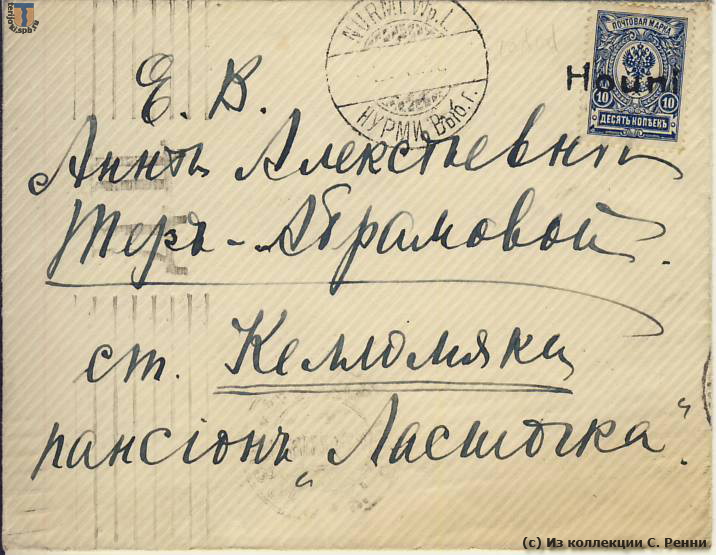 terijoki.spb.ru
NURMI. Wp.l.
НУРМИ, Выб. г.
ПОЧТОВАЯ МАРКА
10 10
ДЕСЯТЬ КОПѢЕКЪ
Houni
Е. В.
Аннѣ Алексѣевнѣ
Теръ-Абрамовой.
ст. Келломяки
пансіонъ „Ласточка“.
(c) Из коллекции С. Ренни